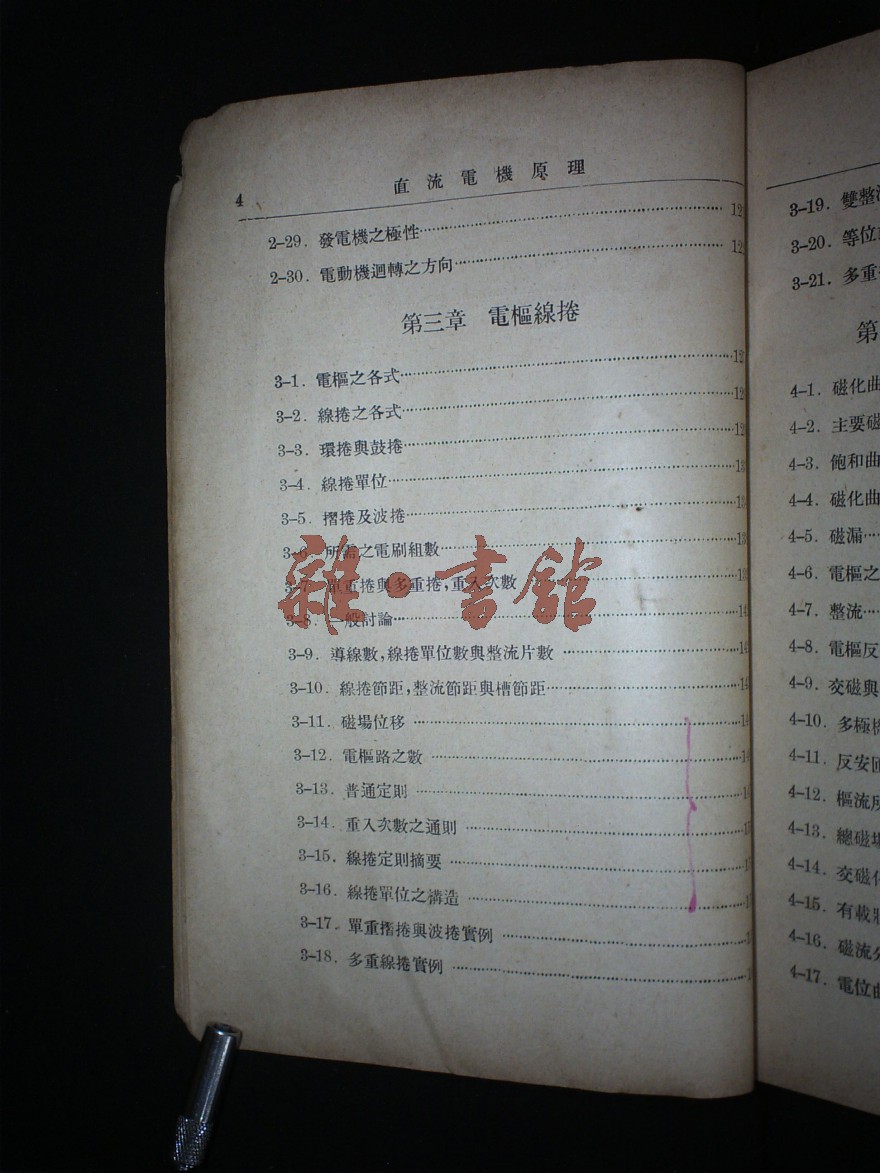 4
直流電機原理
2-29. 發電機之極性
2-30. 電動機迴轉之方向
第三章 電樞線捲
3-1. 電樞之各式
3-2. 線捲之各式
3-3. 環捲與鼓捲
3-4. 線捲單位
3-5. 摺捲及波捲
3-6. 所需之電刷組數
3-7. 單重捲與多重捲,重入次數
3-8. 一般討論
3-9. 導線數,線捲單位數與整流片數
3-10. 線捲節距,整流節距與槽節距
3-11. 磁場位移
3-12. 電樞路之數
3-13. 普通定則
3-14. 重入次數之通則
3-15. 線捲定則摘要
3-16. 線捲單位之構造
3-17. 單重摺捲與波捲實例
3-18. 多重線捲實例
雜·書館
3-19. 雙整
3-20. 等位
3-21. 多重
第
4-1. 磁化曲
4-2. 主要磁
4-3. 飽和曲
4-4. 磁化曲
4-5. 磁漏
4-6. 電樞之
4-7. 整流
4-8. 電樞反
4-9. 交磁與
4-10. 多極
4-11. 反安
4-12. 樞流
4-13. 總磁場
4-14. 交磁化
4-15. 有載
4-16. 磁流分
4-17. 電位曲